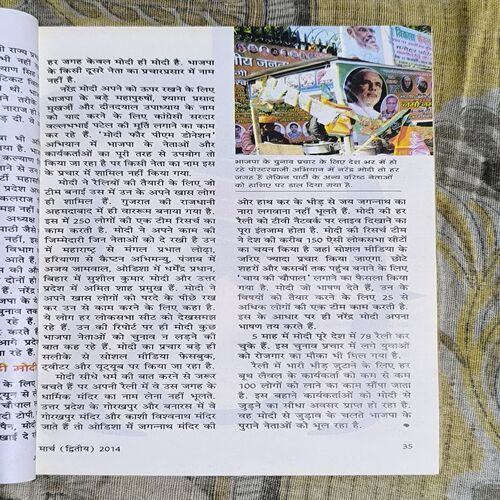 हर जगह केवल मोदी ही मोदी है. भाजपा
के किसी दूसरे नेता का प्रचारप्रसार में नाम
नहीं है.
नरेंद्र मोदी अपने को ऊपर रखने के लिए
भाजपा के बड़े महापुरुषों, श्यामा प्रसाद
मुखर्जी और दीनदयाल उपाध्याय के नाम
को याद करने के लिए कांग्रेसी सरदार
वल्लभभाई पटेल की मूर्ति लगाने का काम
कर रहे हैं. 'मोदी फौर पीएम डोनेशन'
अभियान में भाजपा के नेताओं और
कार्यकर्ताओं का पूरी तरह से उपयोग तो
किया जा रहा है पर किसी नेता का नाम इस
के प्रचार में शामिल नहीं किया गया.
मोदी ने रैलियों की तैयारी के लिए जो
टीम बनाई उस में उन के अपने खास लोग
ही शामिल हैं. गुजरात की राजधानी
अहमदाबाद में ही वाररूम बनाया गया है.
इस में 250 लोगों की एक टीम रिसर्च का
काम करती है. मोदी ने अपने काम की
जिम्मेदारी जिन नेताओं को दे रखी है उन
में महाराष्ट्र से मंगल प्रभात लोढ़ा,
हरियाणा से कैप्टन अभिमन्यु, पंजाब में
अजय जामवाल, ओडिशा में धर्मेंद्र प्रधान,
बिहार में सुशील कुमार मोदी और उत्तर
प्रदेश में अमित शाह प्रमुख हैं. मोदी ने
अपने खास लोगों को परदे के पीछे रख
कर उन से काम करने के लिए कहा है.
ये लोग हर लोकसभा सीट को देखसमझ
रहे हैं. उन की रिपोर्ट पर ही मोदी कुछ
भाजपा नेताओं को चुनाव न लड़ने की
बात कह रहे हैं. मोदी का प्रचार बड़े ही
सलीके से सोशल मीडिया फेसबुक,
ट्वीटर और यूट्यूब पर किया जा रहा है.
मोदी सीधे धर्म की बात करने से जरूर
बचते हैं पर अपनी रैली में वे उस जगह के
धार्मिक मंदिर का नाम लेना नहीं भूलते.
उत्तर प्रदेश के गोरखपुर और बनारस में वे
गोरखपुर मंदिर और काशी विश्वनाथ मंदिर
जाते हैं तो ओडिशा में जगन्नाथ मंदिर की
भाजपा के चुनाव प्रचार के लिए देश भर में हो
रहे पोस्टरबाजी अभियान में नरेंद्र मोदी तो हर
जगह हैं लेकिन पार्टी के अन्य वरिष्ठ नेताओं
को हाशिए पर डाल दिया गया है
ओर हाथ कर के भीड़ से जय जगन्नाथ का
नारा लगवाना नहीं भूलते हैं. मोदी की हर
रैली को टीवी नैटवर्क पर लाइव दिखाने का
पूरा इंतजाम होता है. मोदी की रिसर्च टीम
ने देश की करीब 150 ऐसी लोकसभा सीटों
का चयन किया है जहां सोशल मीडिया के
जरिए ज्यादा प्रचार किया जाएगा. छोटे
शहरों और कसबों तक पहुंच बनाने के लिए
'चाय की चौपाल' लगाने का फैसला किया
गया है. मोदी जो भाषण देते हैं, उन के
विषयों को तैयार करने के लिए 25 से
अधिक लोगों की एक टीम काम करती है.
इस के आधार पर ही नरेंद्र मोदी अपना
भाषण तय करते हैं.
5 माह में मोदी पूरे देश में 78 रैली कर
चुके हैं. इस चुनाव प्रचार में लगे युवाओं
को रोजगार का मौका भी मिल गया है.
रैली में भारी भीड़ जुटाने के लिए, हर
बूथ लैवल के कार्यकर्ता को कम से कम
100 लोगों को लाने का काम सौंपा जाता
है. इस बहाने कार्यकर्ताओं को मोदी से
जुड़ने का सीधा अवसर प्राप्त हो रहा है.
वह मोदी से जुड़ाव के चलते भाजपा के
पुराने नेताओं को भूल रहा है.
मार्च (द्वितीय) 2014
35